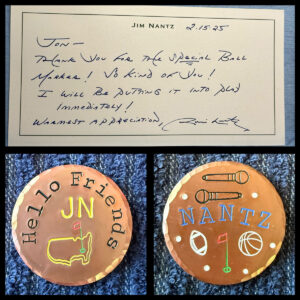 JIM NANTZ
2.15.25
JON-
THANK YOU FOR THE SPECIAL BALL
MARKER! SO KIND OF YOU!
I WILL BE PUTTING IT INTO PLAY
IMMEDIATELY!
WARMEST APPRECIATION,
Hello Friends
JN
NANTZ